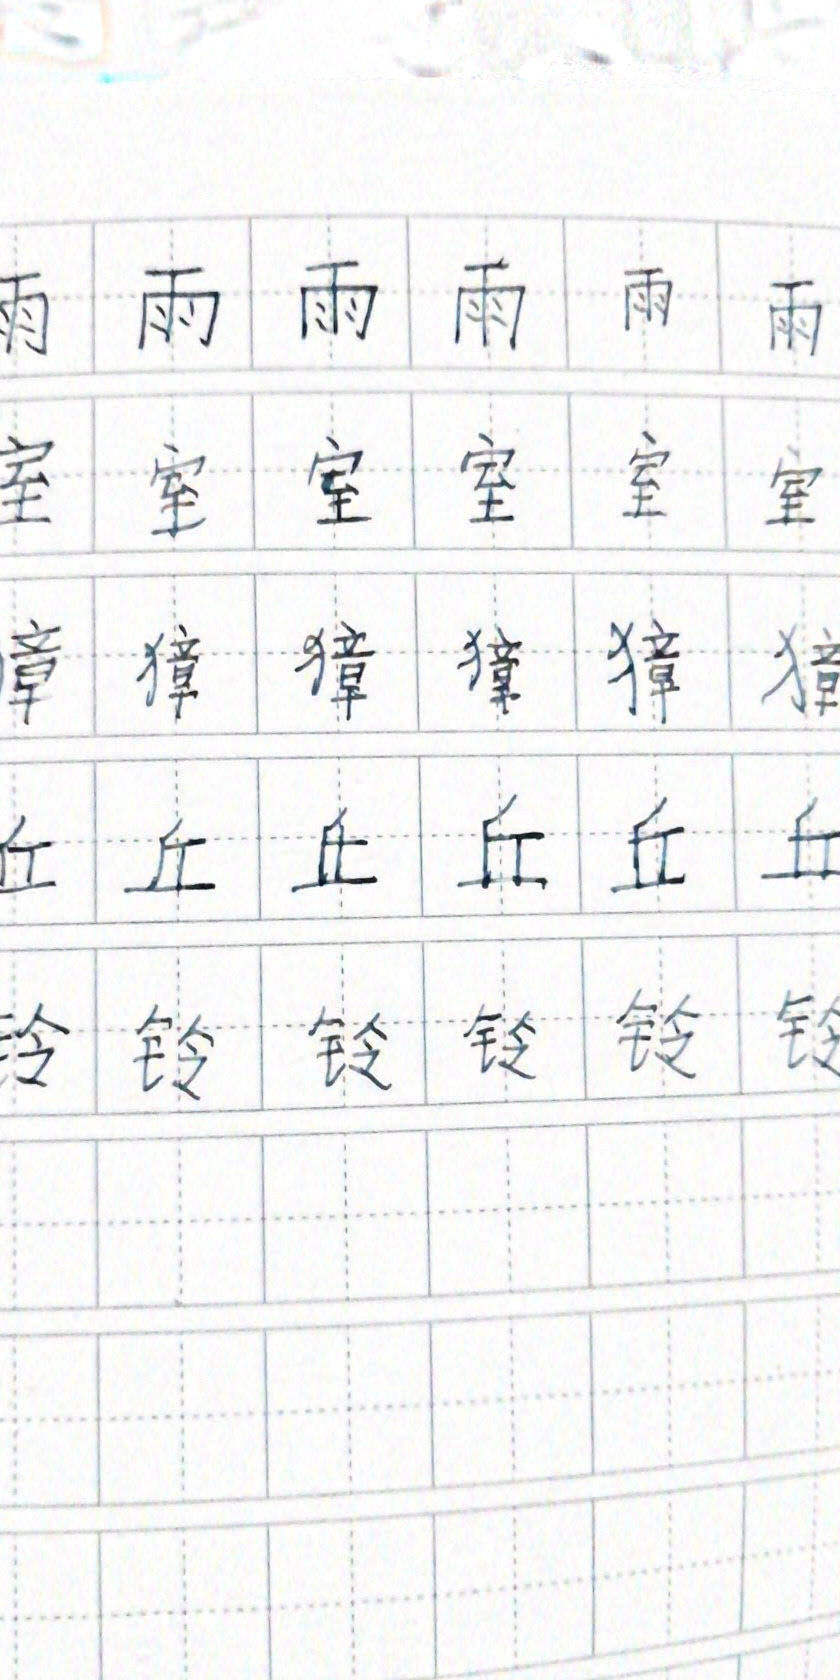 雨雨雨雨雨雨
室室室室室室
獐獐獐獐獐獐
丘丘丘丘丘丘
铃铃铃铃铃铃